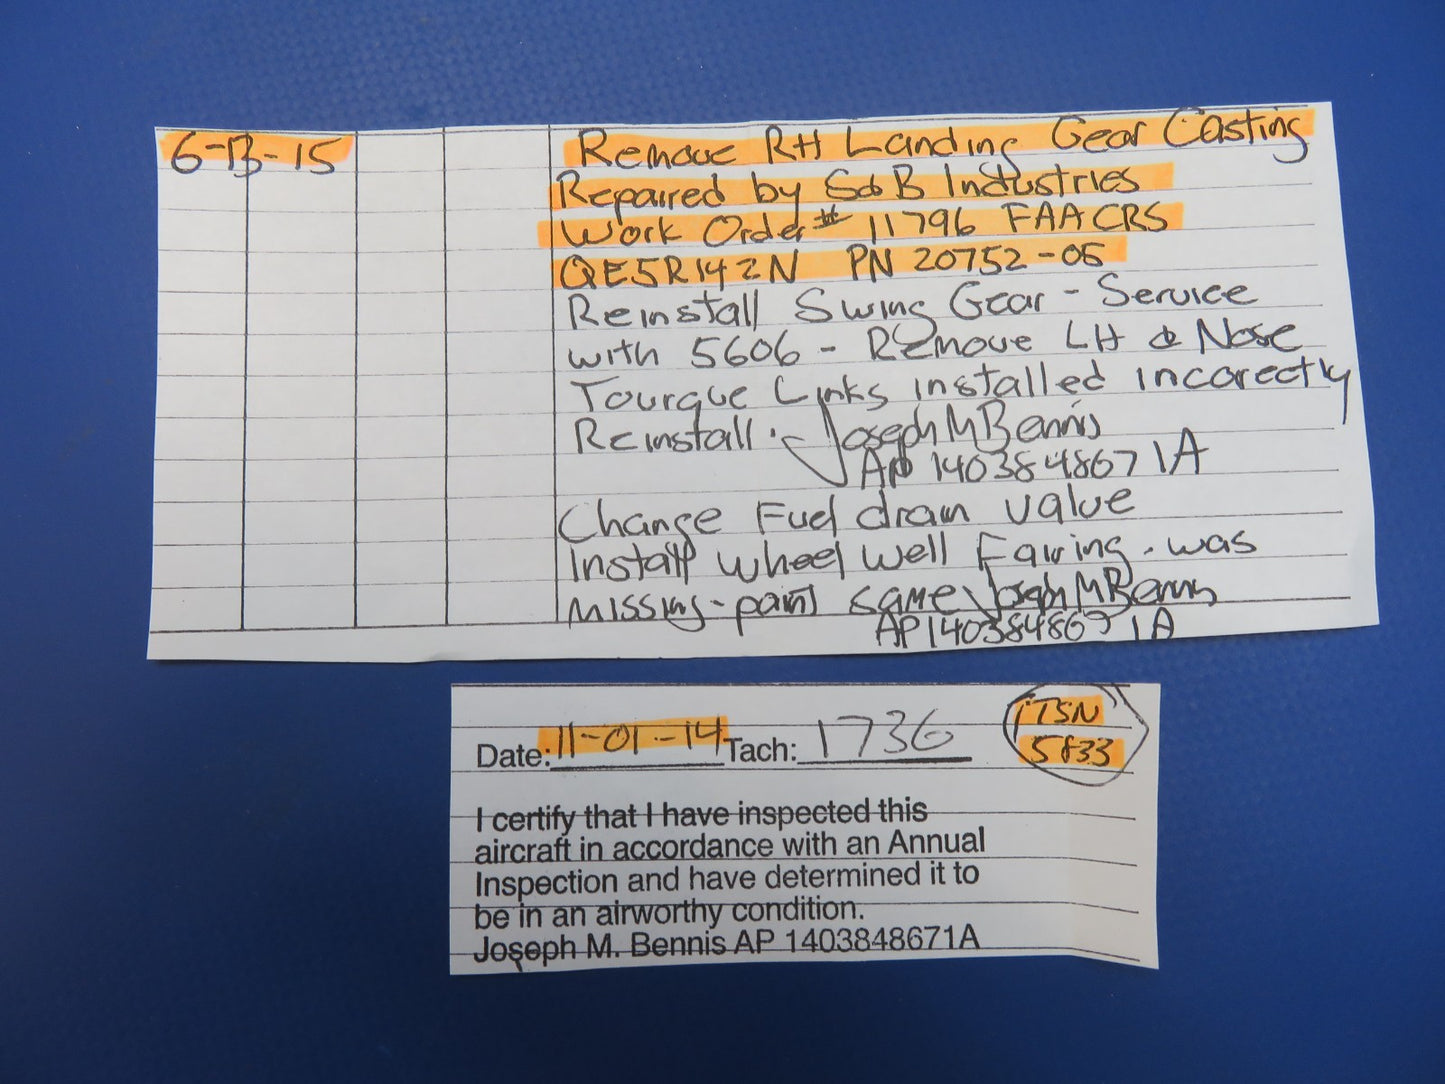 6-13-15 Remove RH Landing Gear Casting
Repaired by S&B Industries
Work Order # 11796 FAA CRS
QE5R142N PN 20752-05
Reinstall Swing Gear - Service
with 5606 - Remove LH & Nose
Tourque Links installed incorectly
Reinstall. Joseph M Bennis
AP 1403848671A
Change Fuel drain valve
Install wheel well Fairing. was
missing - paint same Joseph M Bennis
AP 1403848671A
Date: 11-01-14 Tach: 1736
TTSN
5833
I certify that I have inspected this
aircraft in accordance with an Annual
Inspection and have determined it to
be in an airworthy condition.
Joseph M. Bennis AP 1403848671A